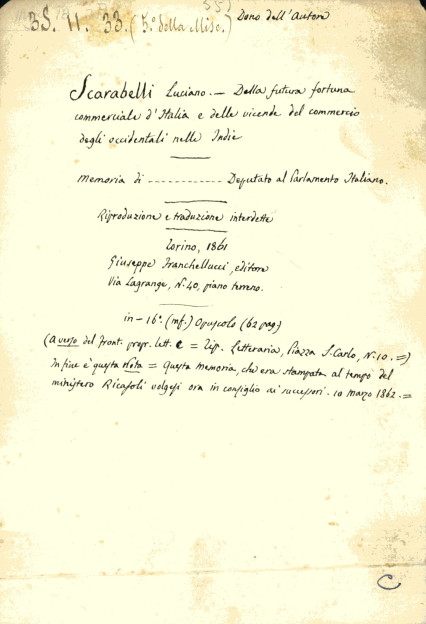 3S. 11. 33. (5.º della Misc.) Dono dell'Autore
Scarabelli Luciano. — Della futura fortuna
commerciale d'Italia e delle vicende del commercio
degli occidentali nelle Indie
Memoria di ------------- Deputato al Parlamento Italiano.
Riproduzione e traduzione interdette
Torino, 1861
Giuseppe Franchellucci, editore
Via Lagrange, N. 40, piano terreno.
in-16º. (mf.) Opuscolo (62 pag.)
(A verso del front. propr. lett. e = Tip. Letteraria, Piazza S. Carlo, N. 10. =)
In fine è questa Nota = Questa Memoria, che era stampata al tempo del
ministero Ricasoli volgesi ora in consiglio ai successori. 10 marzo 1862. =
C